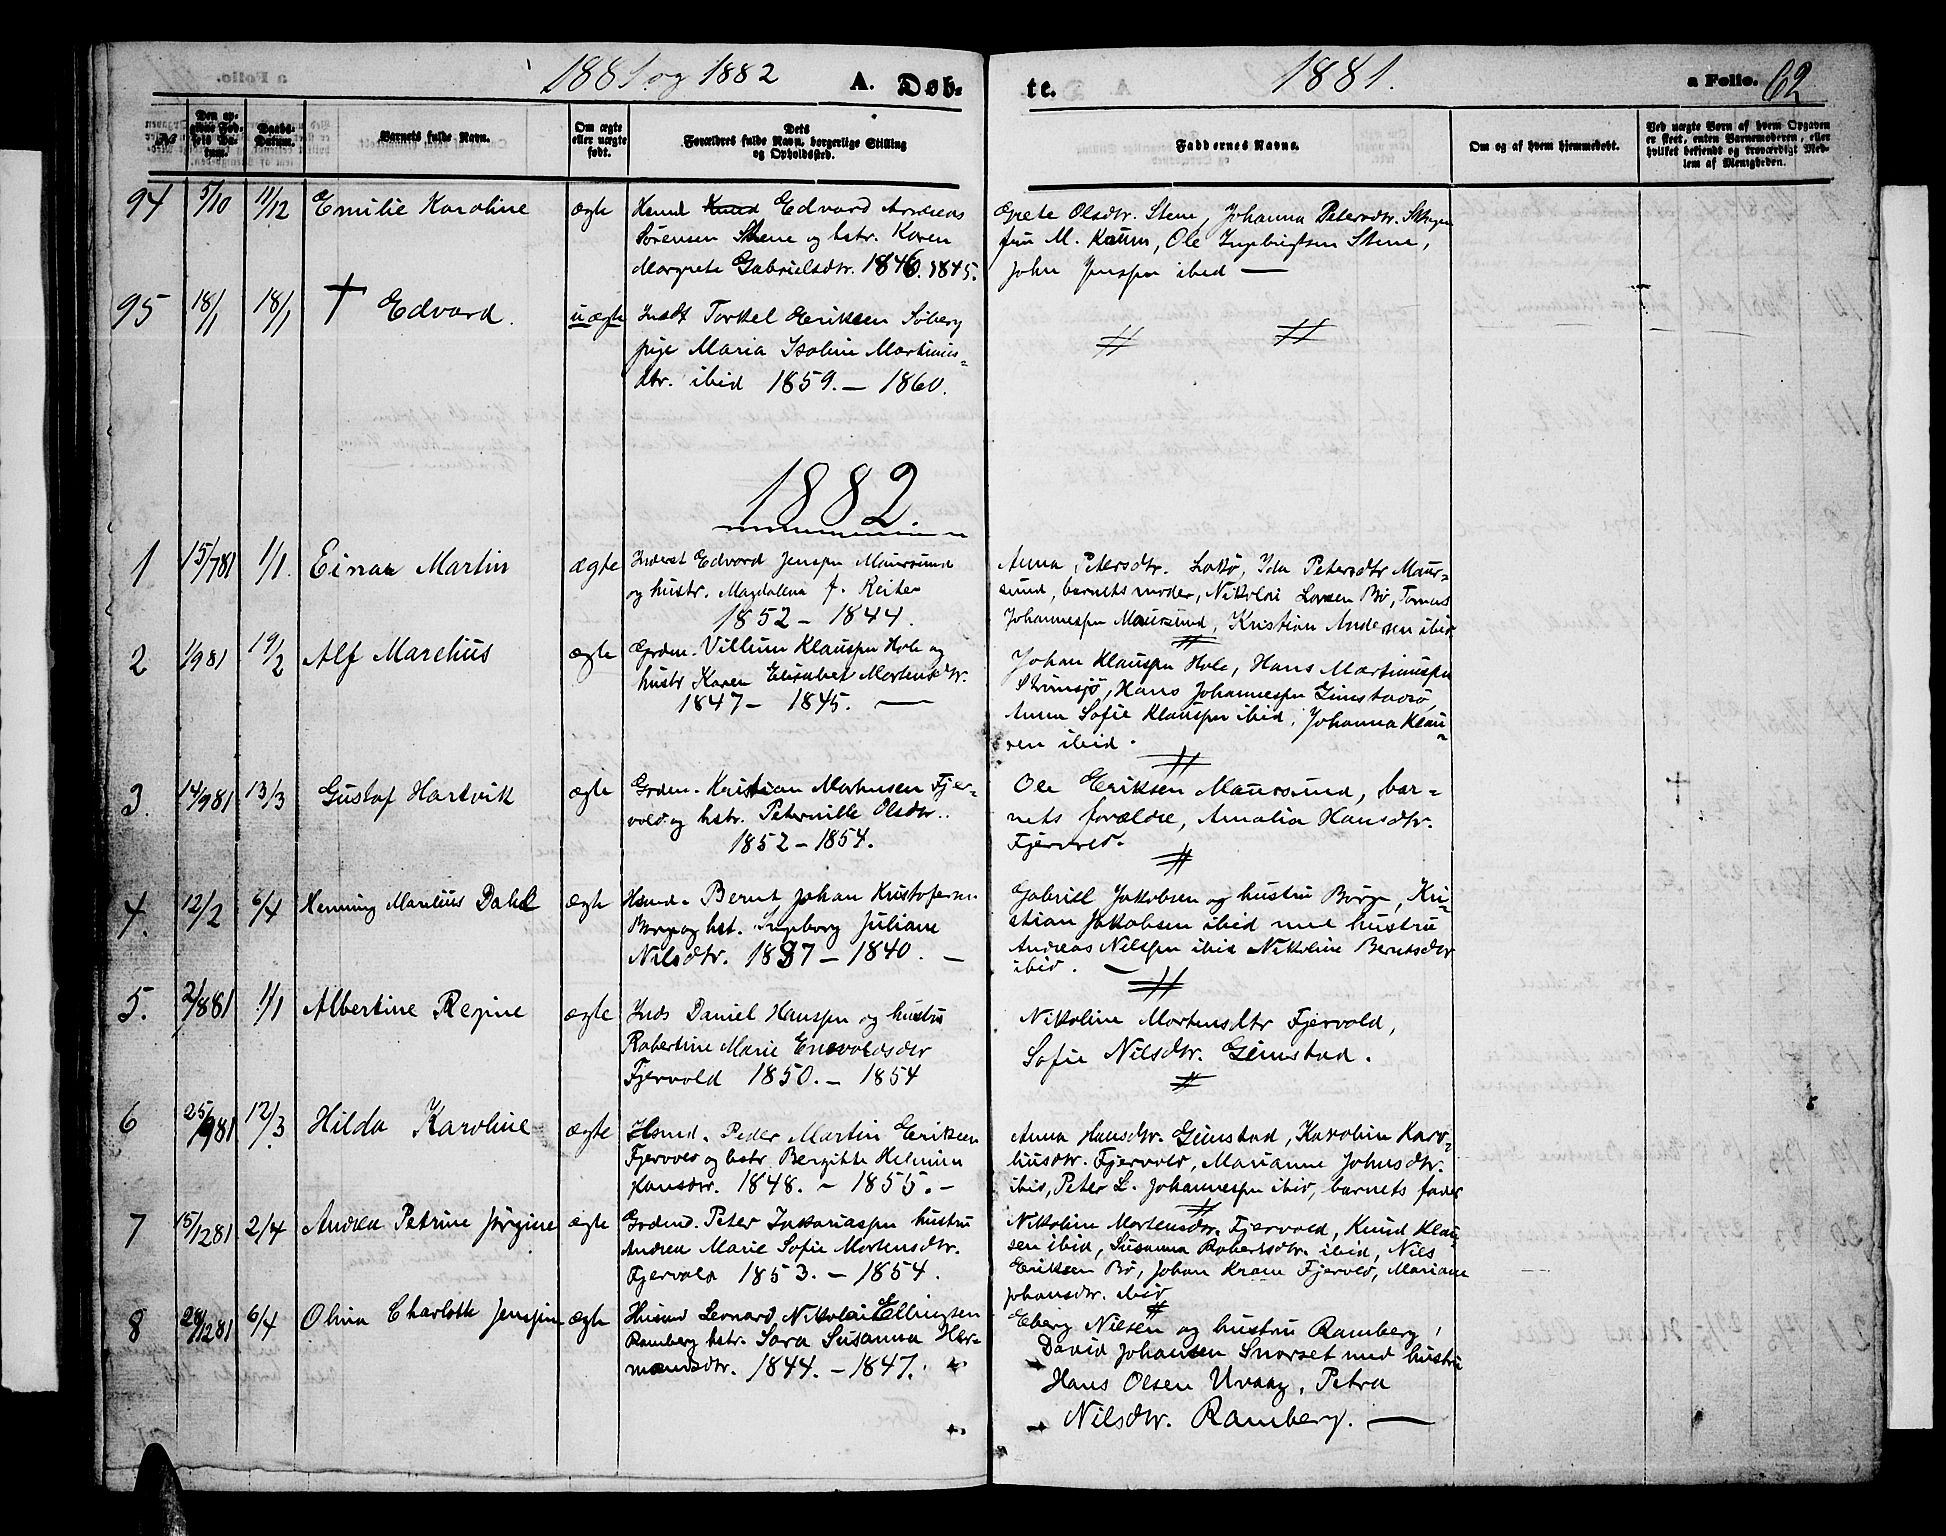 1881 og 1882 A. Døb-
te. 1881. a Folio. 62
No
Den an-
givne Fød-
sels Da-
tum.
Daabs-
Datum.
Barnets fulde Navn.
Om ægte
eller uægte
født.
Dets
Forældres fulde Navn, borgerlige Stilling
og Opholdssted.
Faddernes Navne.
Om og af hvem hjemmedøbt.
Ved uægte Børn af hvem Opgaven
er skeet, enten Barnemoderen, eller
hvilket bekjendt og troværdigt Med-
lem af Menigheden.
94 5/10 11/12 Emilie Karoline ægte Hsmd Knud Edvard Andreas
Sørensen Stene og hstr. Karen
Margrete Gabrielsdtr. 1846. 1845.
Grete Olsdtr. Stene, Johanna Petersdtr. Skagen
fru M. Kaurin, Ole Ingebrigtsen Stene,
John Jenssen ibid —
95 18/1 18/1 † Edvard. uægte Indst Torkel Eriksen Søberg
pige Maria Isoline Martinus-
dtr. ibid 1859. — 1860.
1882.
1 15/7 81 1/1. Einar Martin ægte Inderst Edvard Jenssen Maursund
og hustr. Magdalena f. Reiten
1852 — 1844.
Anna Petersdtr. Lokø, Ida Petersdtr Maur-
sund, barnets moder, Nikolai Larsen Bø, Tomas
Johannessen Maursund, Kristian Andersen ibid
2 1/9 81 19/2 Alf Marelius ægte Grdm. Villum Klaussen Hole og
hustr Karen Elisabet Mortensdtr.
1847 — 1845. —
Johan Klaussen Hole, Hans Martinussen
Strømsjø, Hans Johannessen Gimstadsø,
Anna Sofie Klaussen ibid, Johanna Klau-
sen ibid.
3. 14/9 81 13/3 Gustaf Hartvik ægte Grdm. Kristian Mortensen Fjer-
vold og hstr. Peternille Olsdtr..
1852 — 1854.
Ole Eriksen Maursund, bar-
nets forældre, Amalia Hansdtr.
Fjervold.
†
4. 12/2 6/4 Henning Marelius Dahl ægte Hsmd. Bernt Johan Kristofersen
Borge og hst. Ingeborg Juliane
Nilsdtr. 1837 — 1840. —
Gabriel Jakobsen og hustru Borge, Kri-
stian Jakobsen ibid med hustru
Andreas Nilssen ibid Nikoline Berntsdtr
ibid. —
5. 2/8 81 1/1 Albertine Regine ægte Inds Daniel Hanssen og hustru
Robertine Marie Enevoldsdtr
Fjervold 1850. — 1854
Nikoline Mortensdtr Fjervold,
Sofie Nilsdtr. Gimstad.
6 25/9 81 12/3 Hilda Karoline ægte Hsmd. Peder Martin Eriksen
Fjervold og hstr Bergitte Helmine
Hansdtr. 1848. — 1855. —
Anna Hansdtr. Gimstad, Karoline Karo-
liusdtr. Fjervold, Marianne Johnsdtr.
ibid, Peter L. Johannessen ibid, barnets fader
7 15/12 81 2/4 Andrea Petrine Jørgine ægte Grdmd. Peter Sakariassen hustru
Andrea Marie Sofie Mortensdtr.
Fjervold 1853. — 1854.
Nikoline Mortensdtr. Fjervold, Knud Klau-
sen ibid, Susanna Robertsdtr. ibid, Nils
Eriksen Bø, Johan Krane Fjervold, Mariane
Johansdtr. ibid
8 28/12 81 6/4 Olina Charlotte Jenssine ægte Husmd Leonard Nikolai Ellingsen
Ramberg hstr. Sara Susanna Her-
mansdtr. 1844. — 1847.
Eberg Nilsen og hustru Ramberg,
David Johansen Snorset med hustru
Hans Olsen Uvaag, Petra
Nilsdtr. Ramberg. —